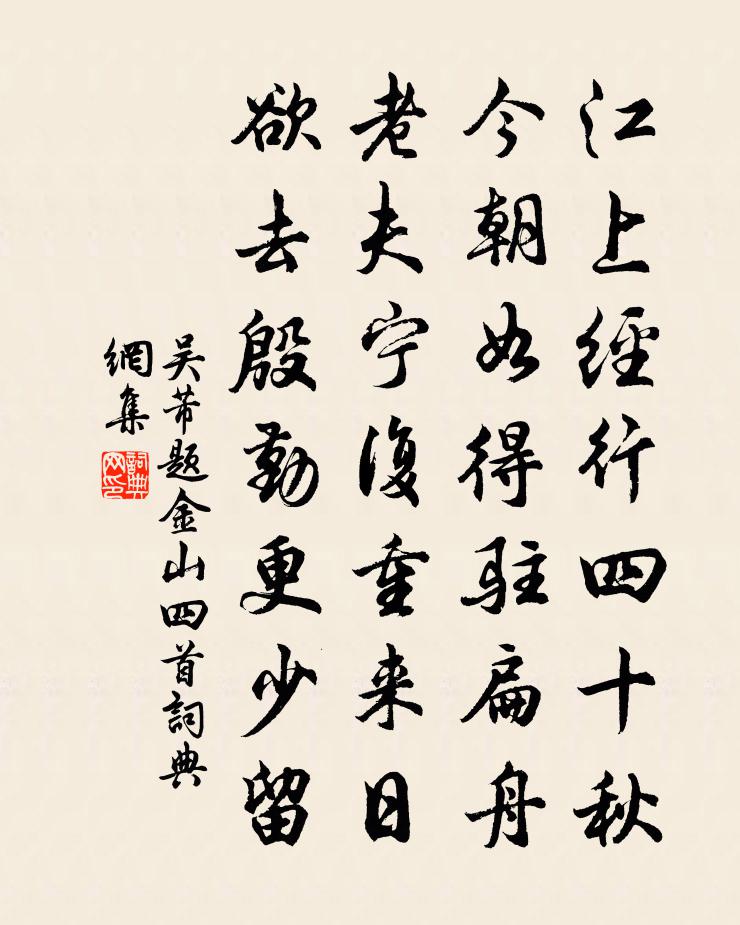 江上經行四十秋
今朝如得駐扁舟
老夫宁復重来日
欲去殷勤更少留
吴芾题金山四首詞典
網集
詞典
网印